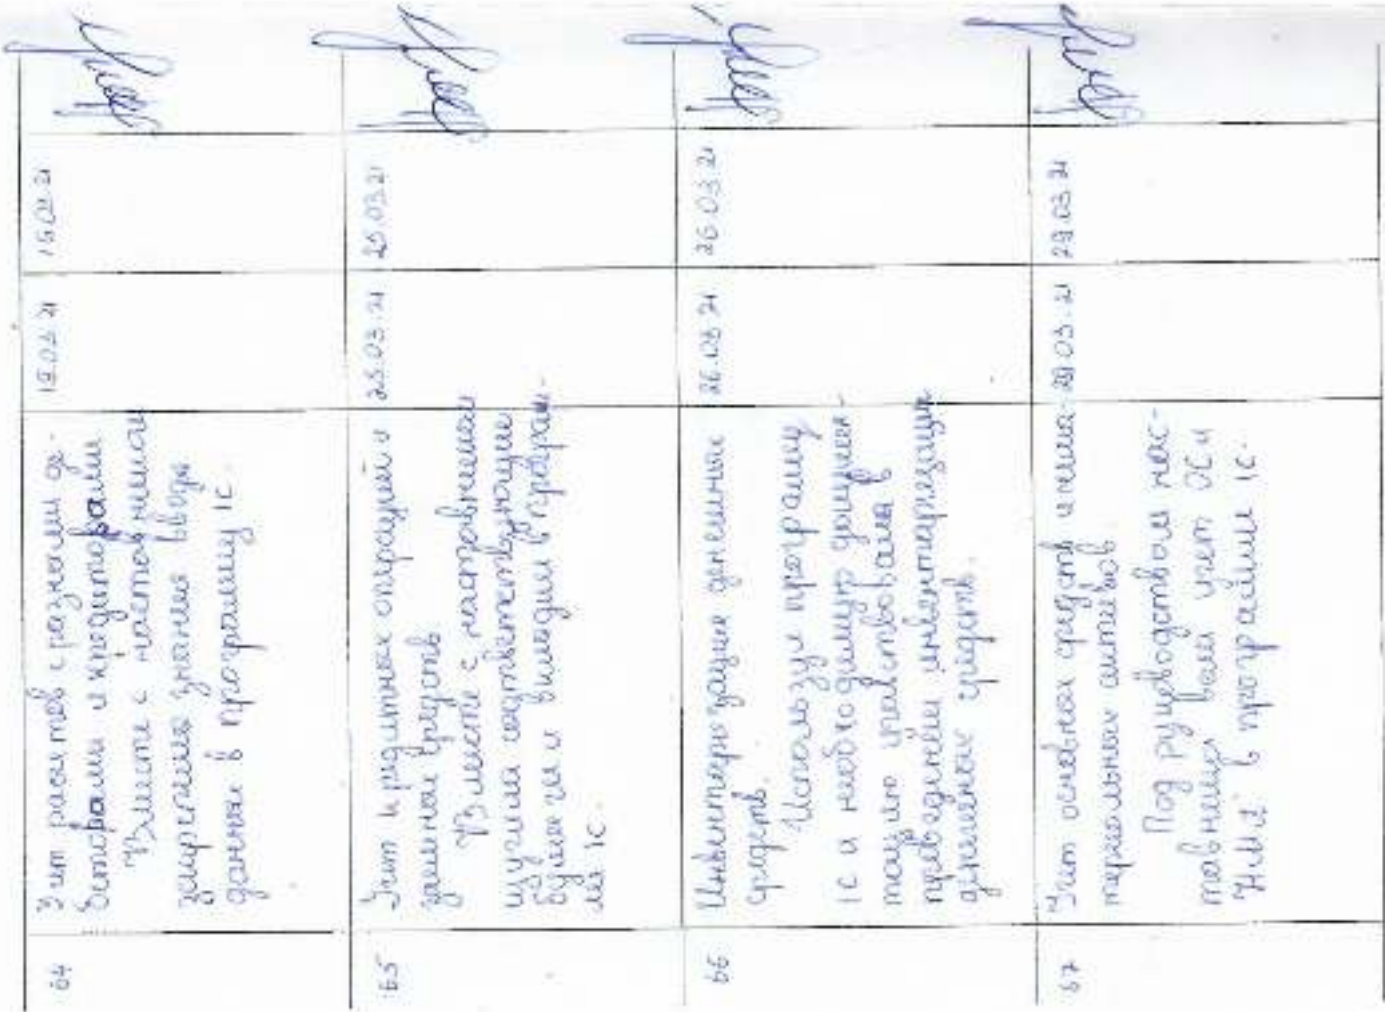 64
Учет расчетов с разными де-
биторами и кредиторами
Вместе с наставником
закрепила знания ввода
данных в программу 1С.
19.03.21
19.03.21
65
Учет кредитных операций и
заемных средств
Вместе с наставником
изучила соответствующие
бумаги и вводили в програм-
ме 1С.
25.03.21
25.03.21
66
Инвентаризация денежных
средств.
Использую программу
1С и необходимую докумен-
тацию участвовала в
проведении инвентаризации
денежных средств.
26.03.21
26.03.21
67
Учет основных средств и нема-
териальных активов
Под руководством нас-
тавника вели учет ОС и
НМА в программе 1С.
29.03.21
29.03.21